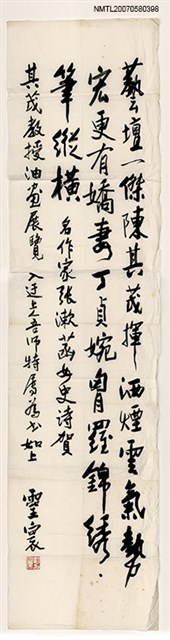 NMTL20070580398
藝壇一傑陳其茂揮洒煙雲氣勢
宏更有嬌妻丁貞婉胷羅錦绣.
筆縱橫 名作家張漱菡女史詩賀
其茂教授油畫展覽 入迂上人吾師特屬為書如上
靈寰